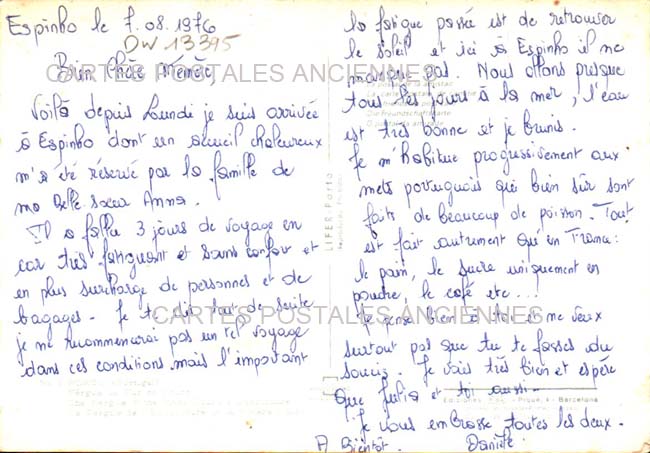 Espinho le 7.08.1976
DW 13395
Bien Chère Mémée,
Voilà depuis Lundi je suis arrivée
à Espinho dont un acueil chaleureux
m'a été réservé par la famille de
ma Belle-soeur Anna.
Il a fallu 3 jours de voyage en
car très fatiguant et sans confort et
en plus surcharge de personnes et de
bagages - Je te dis tout de suite
je ne recommencerai pas un tel voyage
dans ces conditions mais l'important
la fatigue passée est de retrouver
le soleil et ici à Espinho il ne
manque pas. Nous allons presque
tous les jours à la mer, l'eau
est très bonne et je brunis.
Je m'habitue progressivement aux
mets portuguais qui bien sûr sont
faits de beaucoup de poisson. Tout
est fait autrement qu'en France:
le pain, le sucre uniquement en
poudre, le café etc...
Je pense bien à toi et ne veux
surtout pas que tu te fasses du
soucis. Je vais très bien et espère
que Julia et toi aussi.
Je vous embrasse toutes les deux.
A Bientôt. Danièle.
CARTES POSTALES ANCIENNES
CARTES POSTALES ANCIENNES
LIFER-Porto
Barcelona